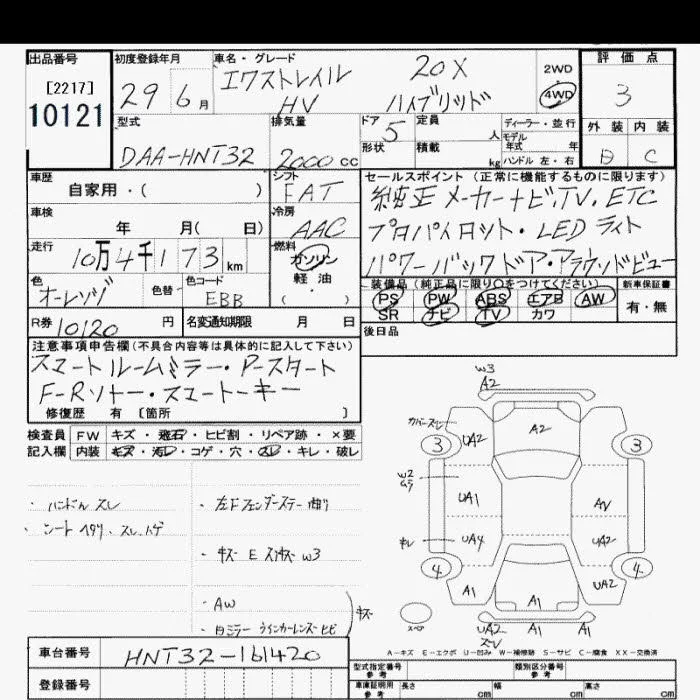 出品番号 初度登録年月 車名・グレード 評価点
[2217]
10121
29 6月
エクストレイル 20X
HV ハイブリッド
2WD
4WD
3
型式 排気量 ドア 定員 ディーラー・並行
5 人 モデル年式 年
形状 積載 kg ハンドル 左・右
外装 内装
B C
DAA-HNT32 2000 cc
車歴 シフト セールスポイント (正常に機能するものに限ります)
自家用・( ) FAT
純正メーカーナビ,TV.ETC
車検 冷房
年 月( 日) AAC
プロパイロット・LEDライト
走行 燃料
10万4千173 km ガソリン
パワーバックドア・アラウンドビュー
軽・油
( )
色 色替 色コード
オーレンジ EBB
装備品 (純正品に限り○をつけてください) 新車保証書
PS PW ABS エアB AW
SR ナビ TV カワ
有・無
R券 10120 円 名変通知期限 月 日
後日品
注意事項申告欄(不具合内容等は具体的に記入して下さい)
スマートルームミラー・Pースタート
F-Rソナー・スマートーキー
修復歴 有 〔箇所 〕
検査員 FW キズ・飛石・ヒビ割・リペア跡・×要
記入欄 内装 キズ・汚レ・コゲ・穴・スレ・キレ・破レ
・ハンドルスレ
・シートヘタリ、スレ、ハゲ
・左Fフェンダーステー曲り
・キズ E スリキズ W3
・AW
・白ミラーウインカーレンズヒビ
キズ
W3
A2
カバースレ
3
UA2
A2
3
W2
UA1
AV
キレ
UA4
UA2
4
4
A1
A1
UA2
スペア
UA2
スレ
A1
A1
A-キズ E-エクボ U-凹み W-補修跡 S-サビ C-腐食 XX-交換済
車台番号 HNT32-161420
登録番号
型式指定番号 参考 類別区分番号 参考
車庫証明用 参考 長さ cm 幅 cm 高さ cm